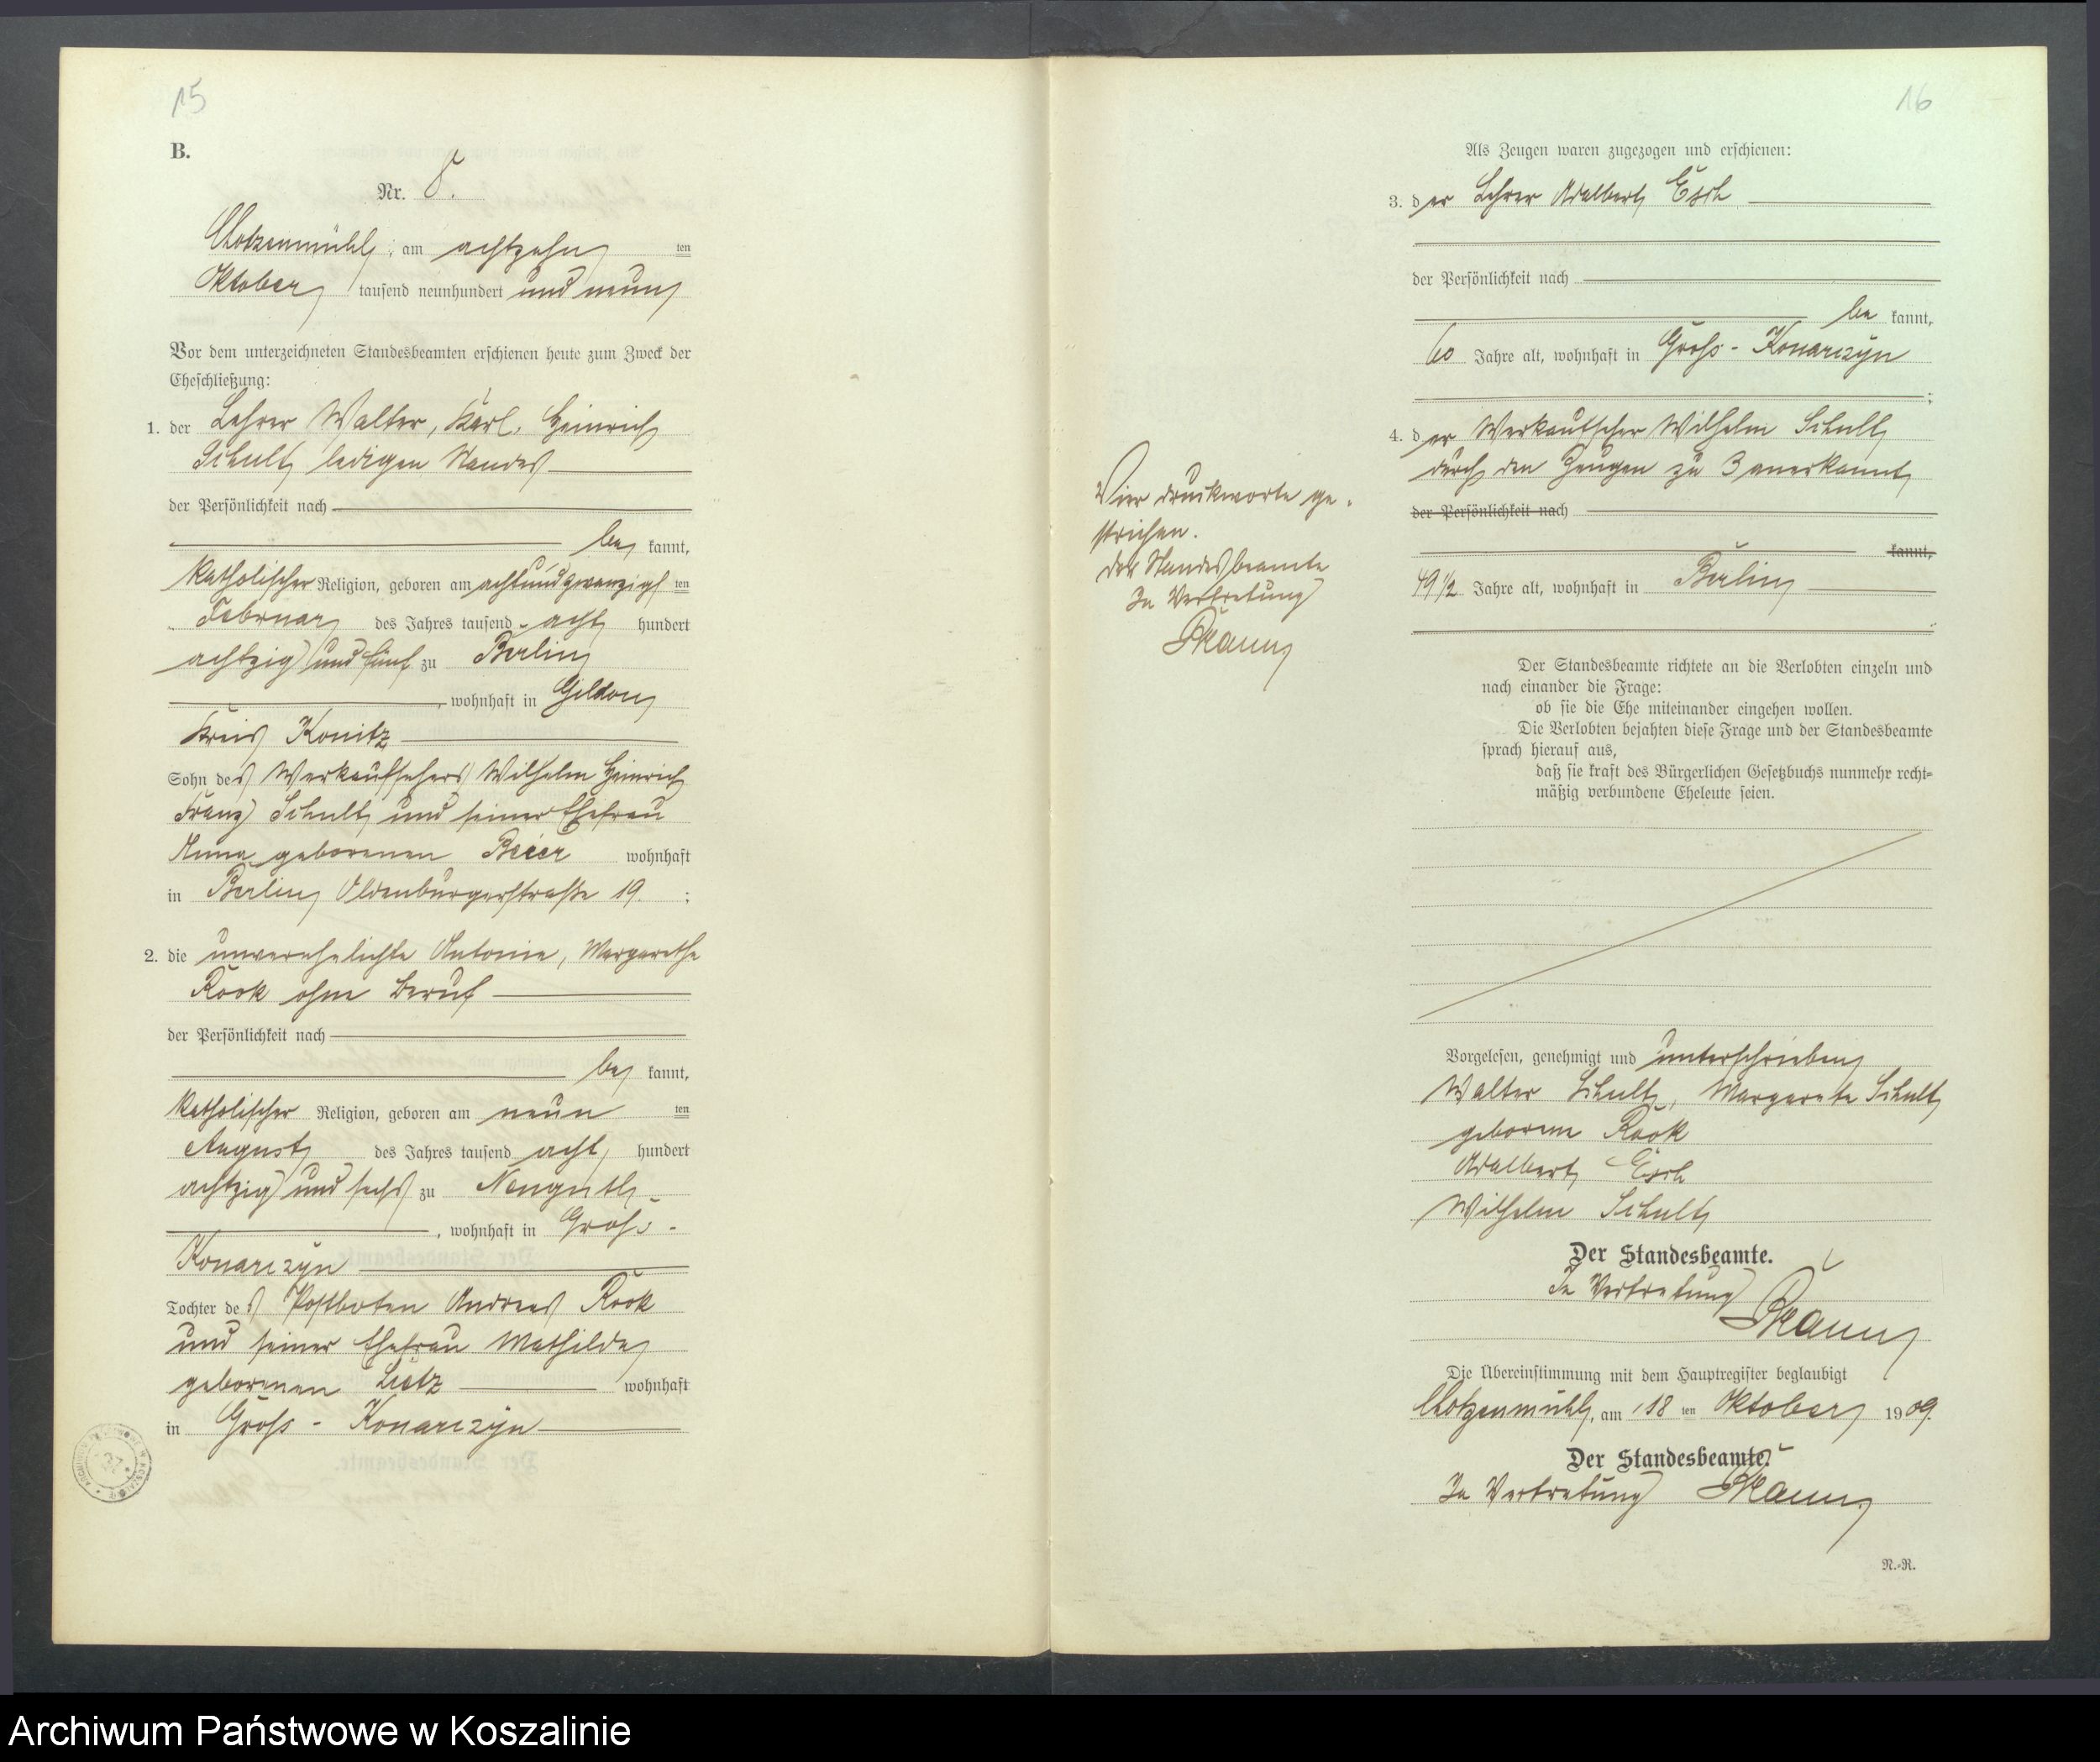 15
B.
Nr. 8.
Chotzenmühl, am achtzehn ten
Oktober tausend neunhundert und neun
Vor dem unterzeichneten Standesbeamten erschienen heute zum Zweck der
Eheschließung:
1. der Lehrer Walter, Karl, Heinrich
Schultz ledigen Standes
der Persönlichkeit nach
be kannt,
katholischer Religion, geboren am achtundzwanzigs ten
Februar des Jahres tausend acht hundert
achtzig und fünf zu Berlin
, wohnhaft in Gildon
Kreis Konitz
Sohn des Werkaufsehers Wilhelm Heinrich
Franz Schultz und seiner Ehefrau
Anna geborenen Beier wohnhaft
in Berlin Oldenburgerstraße 19. ;
2. die unverehelichte Antonie, Margarethe
Rook ohne Beruf
der Persönlichkeit nach
be kannt,
katholischer Religion, geboren am neun ten
August des Jahres tausend acht hundert
achtzig und sechs zu Neuguth
, wohnhaft in Gross-
Konarczyn
Tochter des Postboten Andreas Rook
und seiner Ehefrau Mathilde
geborenen Lietz wohnhaft
in Gross-Konarczyn
16
Als Zeugen waren zugezogen und erschienen:
3. der Lehrer Adalbert
der Persönlichkeit nach
be kannt,
60 Jahre alt, wohnhaft in Gross-Konarczyn
;
4. der Werkaufseher Wilhelm Schultz
durch den Zeugen zu 3 anerkannt
der Persönlichkeit nach
kannt,
49 1/2 Jahre alt, wohnhaft in Berlin
Vier Druckworte ge-
strichen.
Der Standesbeamte
In Vertretung
Der Standesbeamte richtete an die Verlobten einzeln und
nach einander die Frage:
ob sie die Ehe miteinander eingehen wollen.
Die Verlobten bejahten diese Frage und der Standesbeamte
sprach hierauf aus,
daß sie kraft des Bürgerlichen Gesetzbuchs nunmehr recht=
mäßig verbundene Eheleute seien.
Vorgelesen, genehmigt und unterschrieben
Walter Schultz, Margarete Schultz
geborene Rook
Adalbert
Wilhelm Schultz
Der Standesbeamte.
In Vertretung
Die Übereinstimmung mit dem Hauptregister beglaubigt
Chotzenmühl, am 18 ten Oktober 1909.
Der Standesbeamte.
In Vertretung
N.=R.
Archiwum Państwowe w Koszalinie